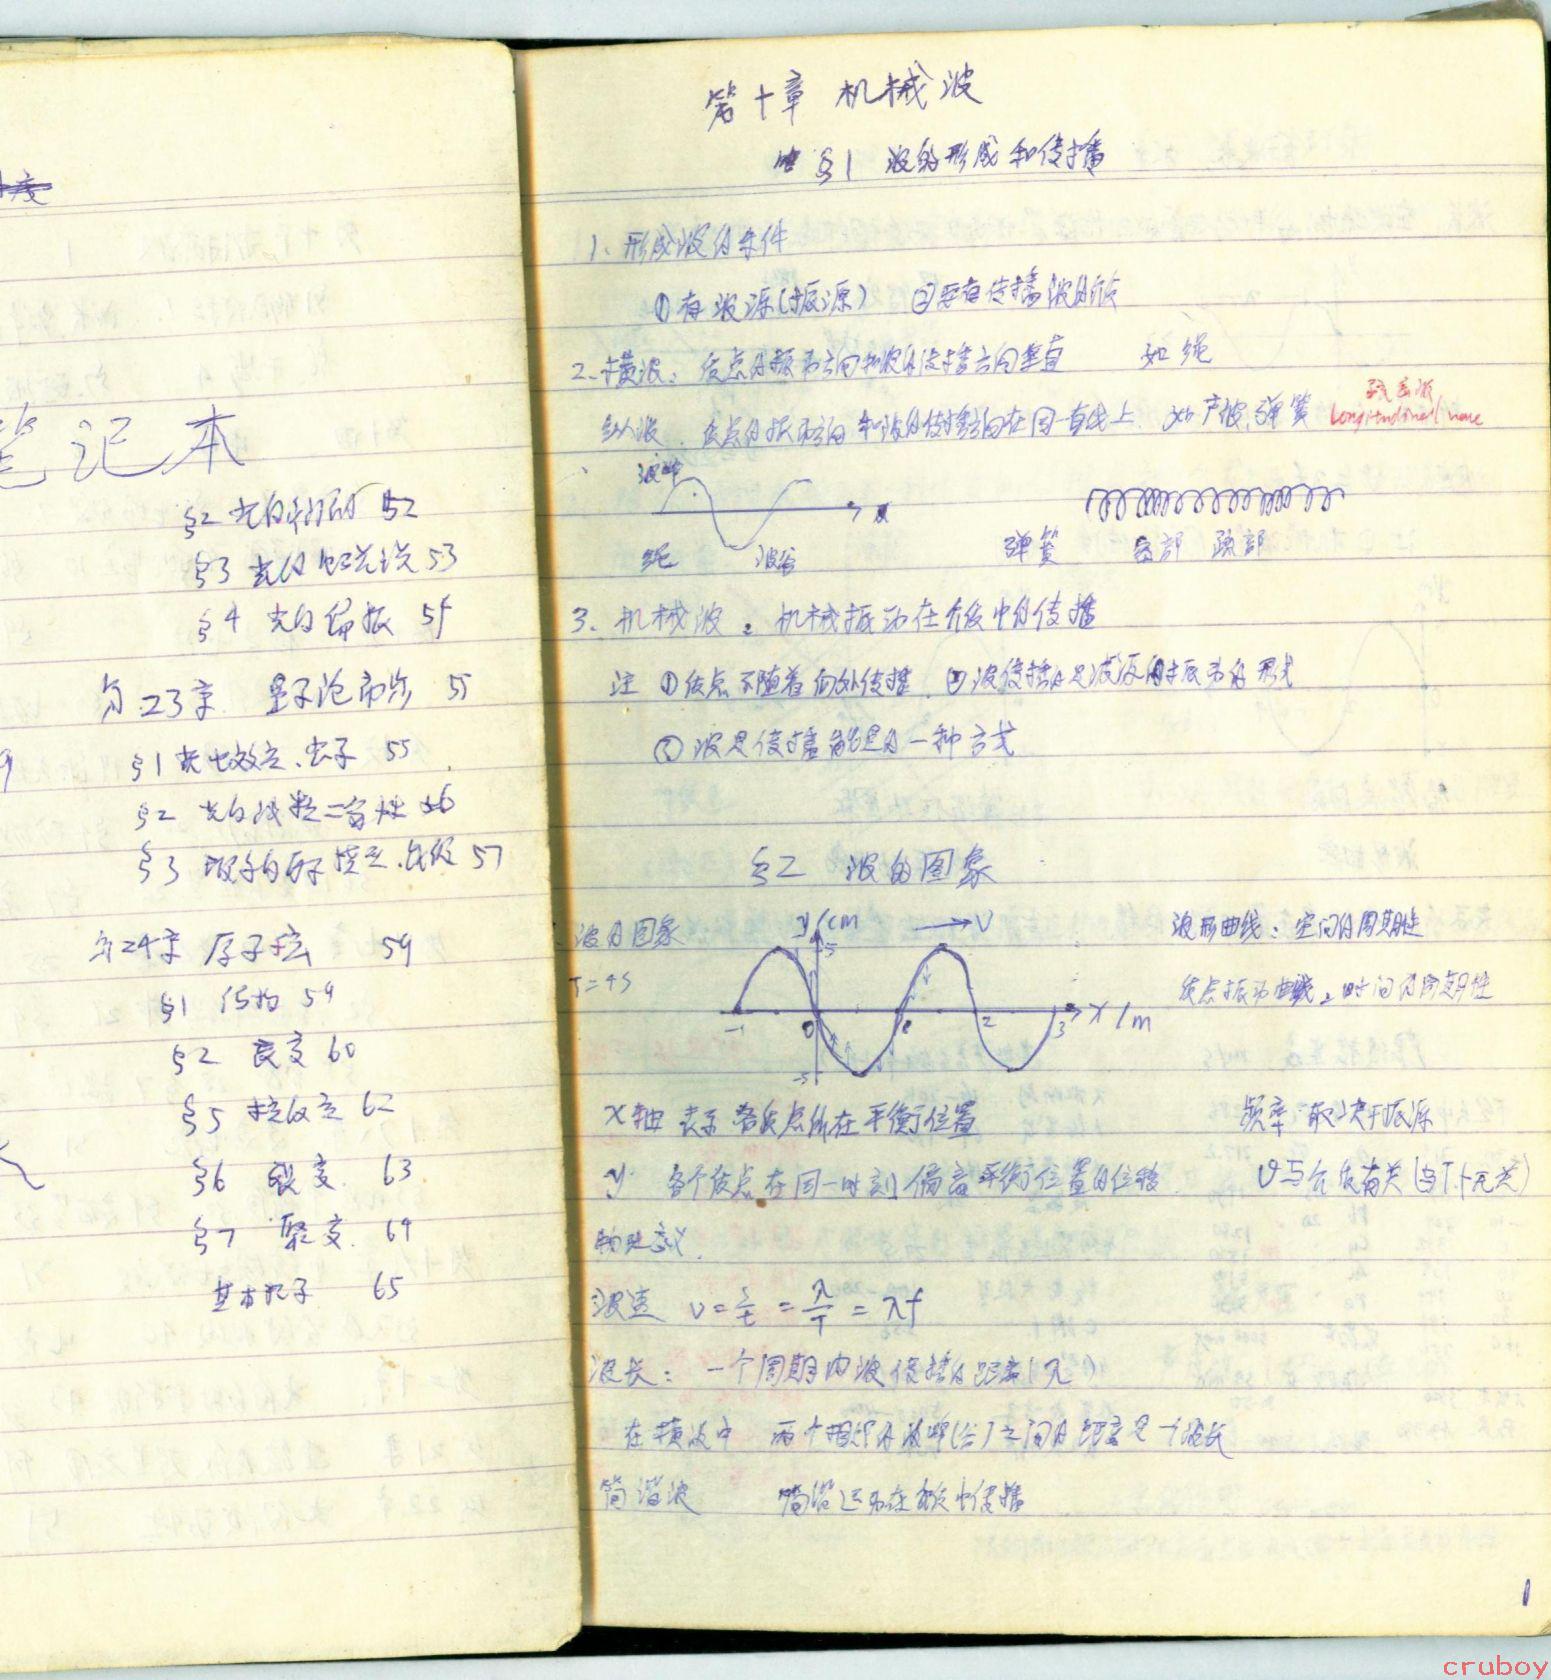 笔记本
§2 光的衍射 52
§3 光的电磁说 53
§4 光的偏振 54
第23章 量子论初步 55
§1 光电效应、光子 55
§2 光的波粒二象性 56
§3 玻尔的原子模型、能级 57
第24章 原子核 59
§1 结构 59
§2 衰变 60
§5 核反应 62
§6 裂变 63
§7 聚变 64
基本粒子 65
第十章 机械波
§1 波的形成和传播
1、形成波的条件
①有波源(振源) ②要有传播波的介质
2、横波: 质点的振动方向和波的传播方向垂直 如绳
纵波: 质点的振动方向和波的传播方向在同一直线上. 如声波, 弹簧 Longitudinal wave
波峰
x
绳 波谷 弹簧 密部 疏部
3、机械波: 机械振动在介质中的传播
注 ①质点不随着向外传播. ②波传播的是波源的振动的形式
③波是传播能量的一种方式
§2 波的图象
波的图象 y/cm →V 波形曲线: 空间的周期性
5
T=4S 质点振动曲线: 时间的周期性
-1 0 2 3 x/m
-5
x轴 表示各质点所在平衡位置 频率取决于振源
y 各个质点在同一时刻偏离平衡位置的位移 v与介质有关(与T,f无关)
物理意义.
波速 v=s/t=λ/T=λf
波长: 一个周期内波传播的距离(λ)
在横波中 两个相邻的波峰(谷)之间的距离是一个波长
简谐波 简谐运动在介质中传播
1
cruboy